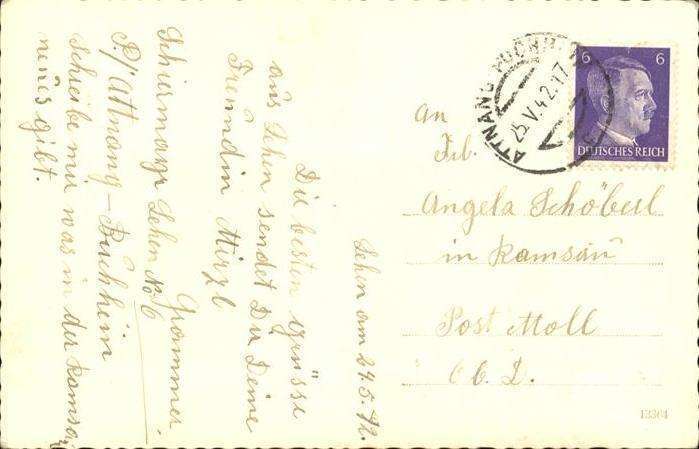 Lehen am 24.5.42.
Die besten Grüsse
aus Lehen sendet Dir Deine
Freundin Mirzl
Grammer.
Schiermayr Lehen No 6
P/ Attnang-Buchheim
Schreibe mir was in der Ramsau
neues gibt.
6 6
DEUTSCHES REICH
ATTNANG-PUCHHEIM
25.V.42.17
An
Frl.
Angela Schöberl
in Ramsau
Post Molln
Ob. D.
13304